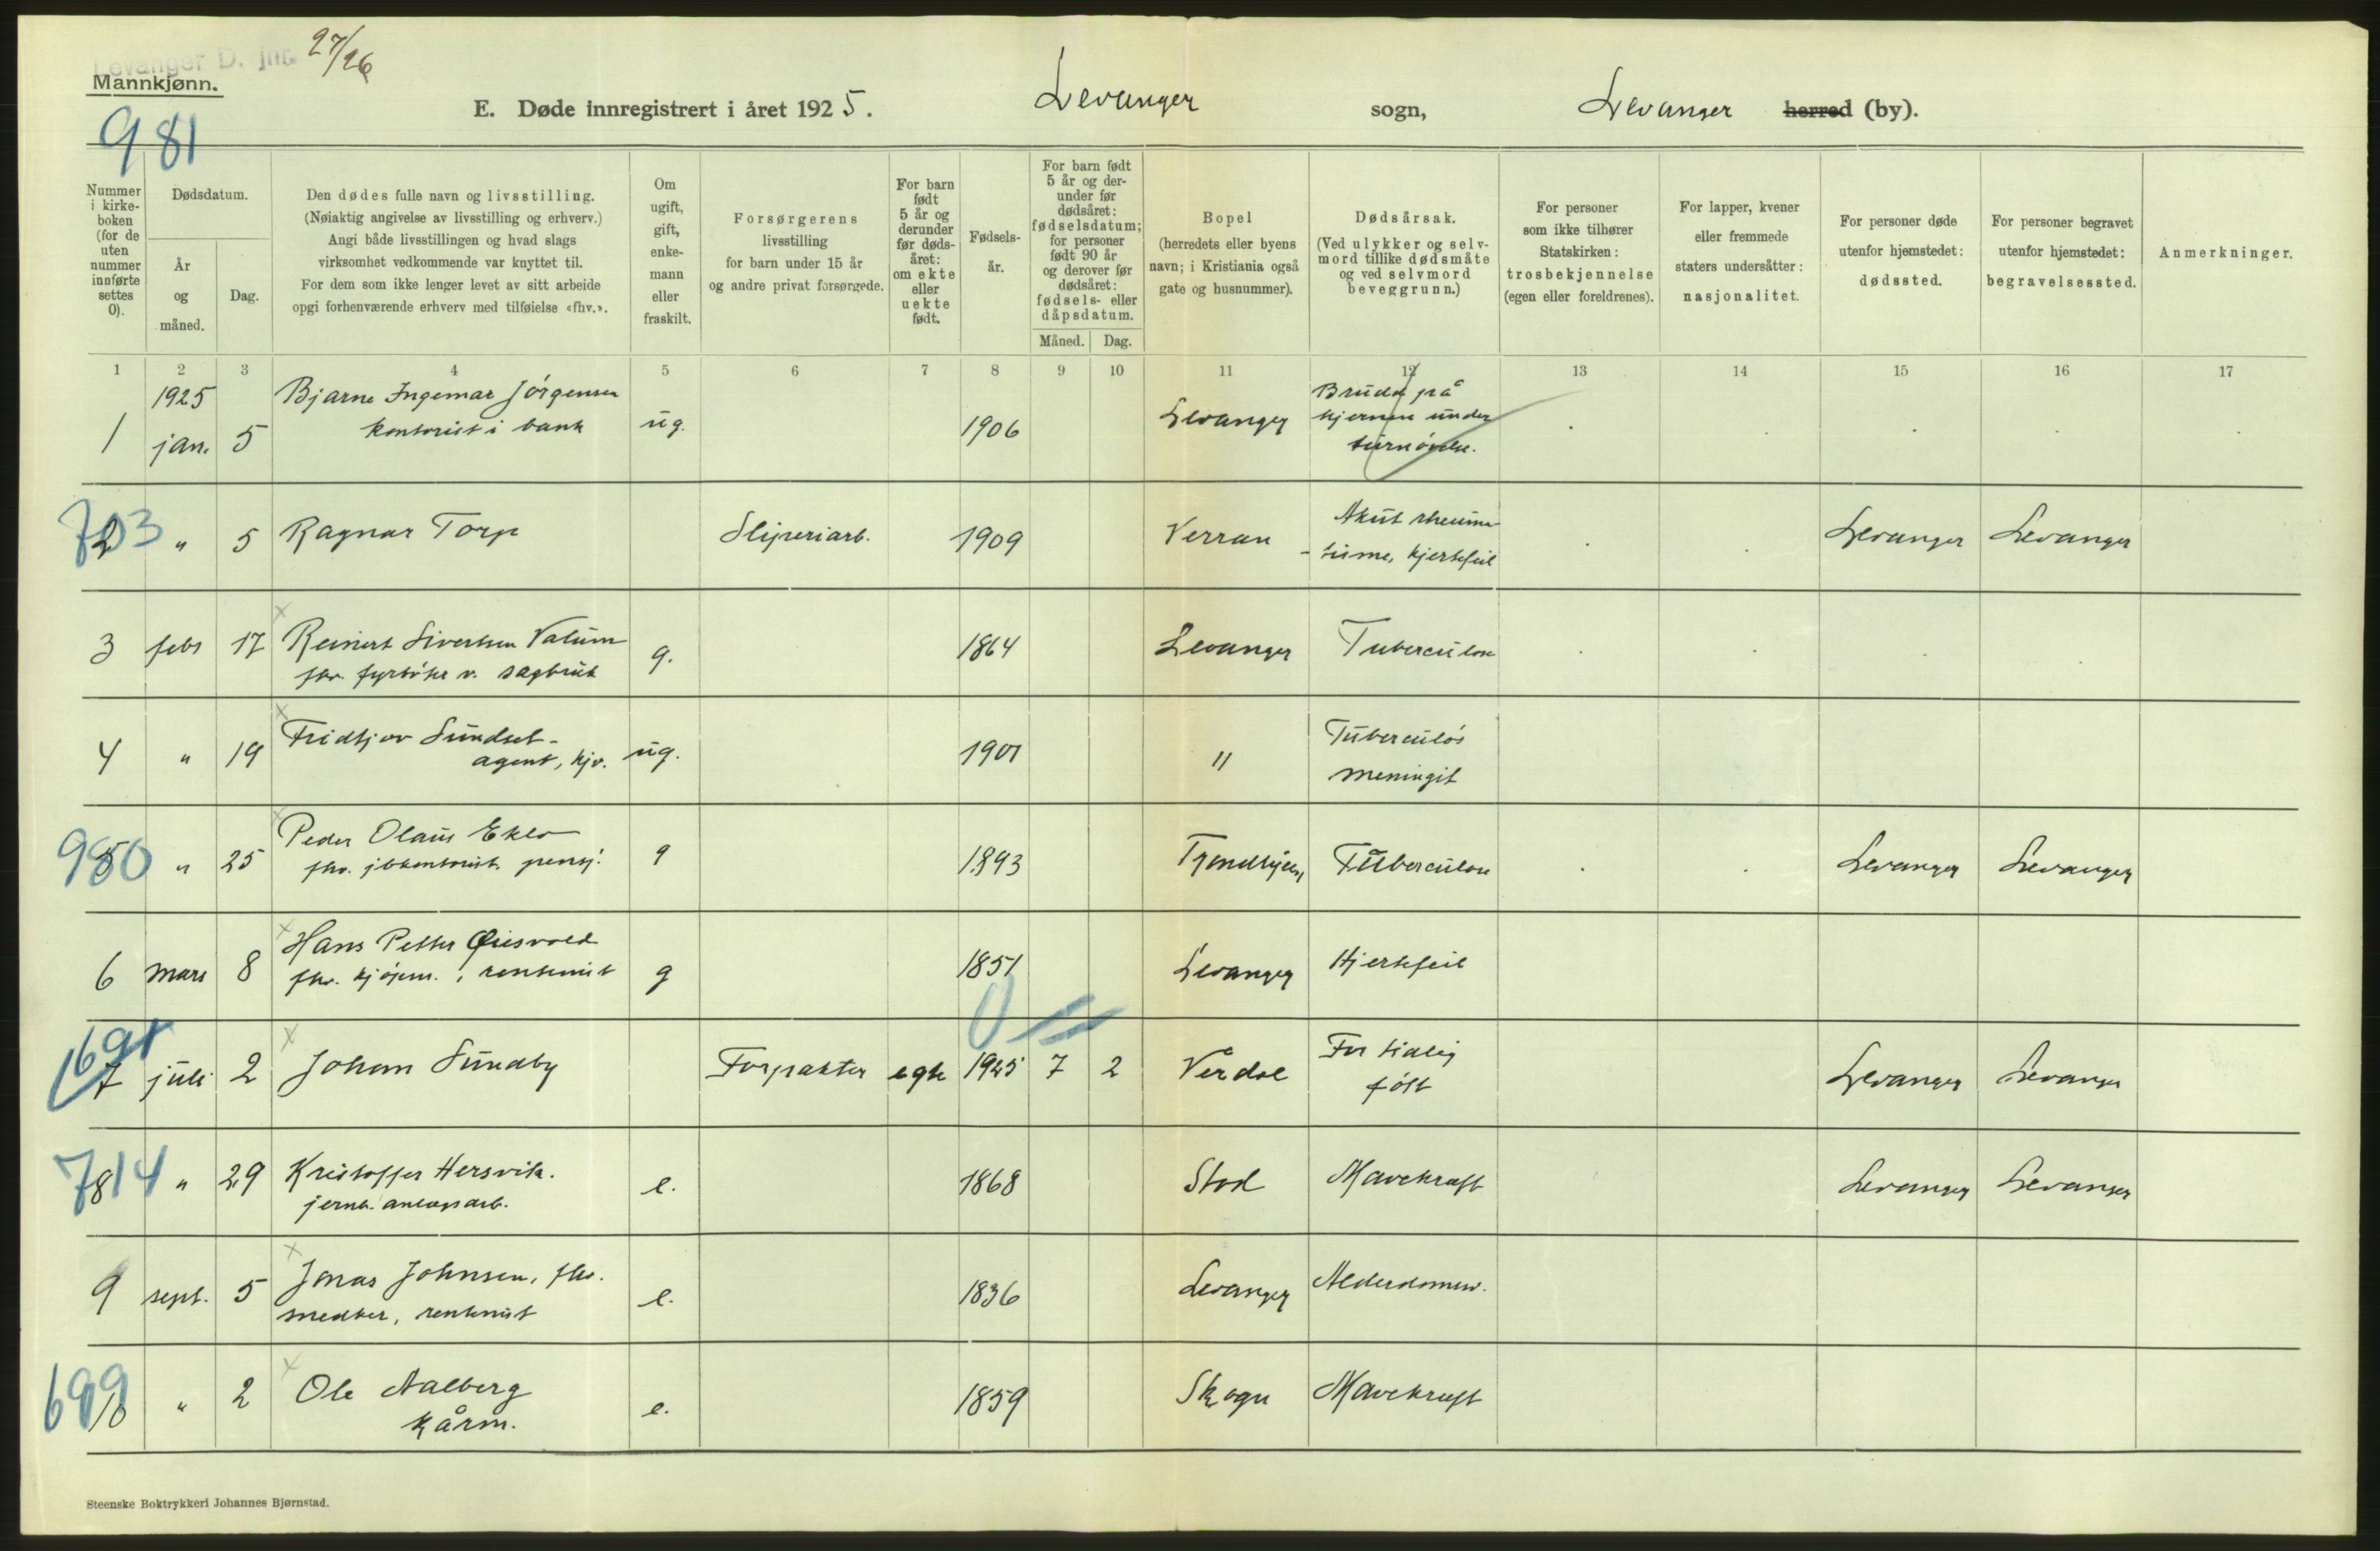 Levanger D. jnr. 27/26
Mannkjønn.
981
E. Døde innregistrert i året 1925. Levanger sogn, Levanger herred (by).
Nummer i kirke-boken (for de uten nummer innførte settes 0).
Dødsdatum.
År og måned.
Dag.
Den dødes fulle navn og livsstilling.
(Nøiaktig angivelse av livsstilling og erhverv.)
Angi både livsstillingen og hvad slags
virksomhet vedkommende var knyttet til.
For dem som ikke lenger levet av sitt arbeide
opgi forhenværende erhverv med tilføielse «fhv.».
Om ugift, gift, enke-mann eller fraskilt.
Forsørgerens
livsstilling
for barn under 15 år
og andre privat forsørgede.
For barn født 5 år og derunder før døds-året: om ekte eller uekte født.
Fødsels-år.
For barn født 5 år og der-under før dødsåret: fødselsdatum; for personer født 90 år og derover før dødsåret: fødsels- eller dåpsdatum.
Måned. Dag.
Bopel
(herredets eller byens
navn; i Kristiania også
gate og husnummer).
Dødsårsak.
(Ved ulykker og selv-
mord tillike dødsmåte
og ved selvmord
beveggrunn.)
For personer
som ikke tilhører
Statskirken:
trosbekjennelse
(egen eller foreldrenes).
For lapper, kvener
eller fremmede
staters undersåtter:
nasjonalitet.
For personer døde
utenfor hjemstedet:
dødssted.
For personer begravet
utenfor hjemstedet:
begravelsessted.
Anmerkninger.
1 2 3 4 5 6 7 8 9 10 11 12 13 14 15 16 17
1925 Bjarne Ingemar Jörgensen Brudd på
1 jan. 5 kontorist i bank ug. 1906 Levanger hjernen under
turnövelse.
703
2 " 5 Ragnar Torp Sliperiarb. 1909 Verran Akut rheuma- Levanger Levanger
-tisme, hjertefeil
3 febr 17 Reinert Sivertsen Valum g. 1864 Levanger Tuberculose
fhv. fyrböter v. sagbruk
4 " 19 Fridtjov Sundset- ug. 1901 " Tuberculös
agent, hjv. meningit
980
5 " 25 Peder Olaus Eklo g 1893 Trondhjem Tuberculose Levanger Levanger
fhv. jbkontorist. pensj.
6 mars 8 Hans Petter Øiesvold g 1851 Levanger Hjertefeil
fhv. kjöpm., rentenist
1691 0
7 juli 2 Johan Sundby Forpakter egte 1925 7 2 Verdal For tidlig Levanger Levanger
fött
714
8 " 29 Kristoffer Hersvik. e. 1868 Stod Mavekræft Levanger Levanger
jernb. anlægsarb.
9 sept. 5 Jonas Johnsen, fhv. e. 1836 Levanger Alderdomssv.
snedker, rentenist
699
10 " 2 Ole Aalberg e. 1859 Skogn Mavekræft
kårm.
Steenske Boktrykkeri Johannes Bjørnstad.